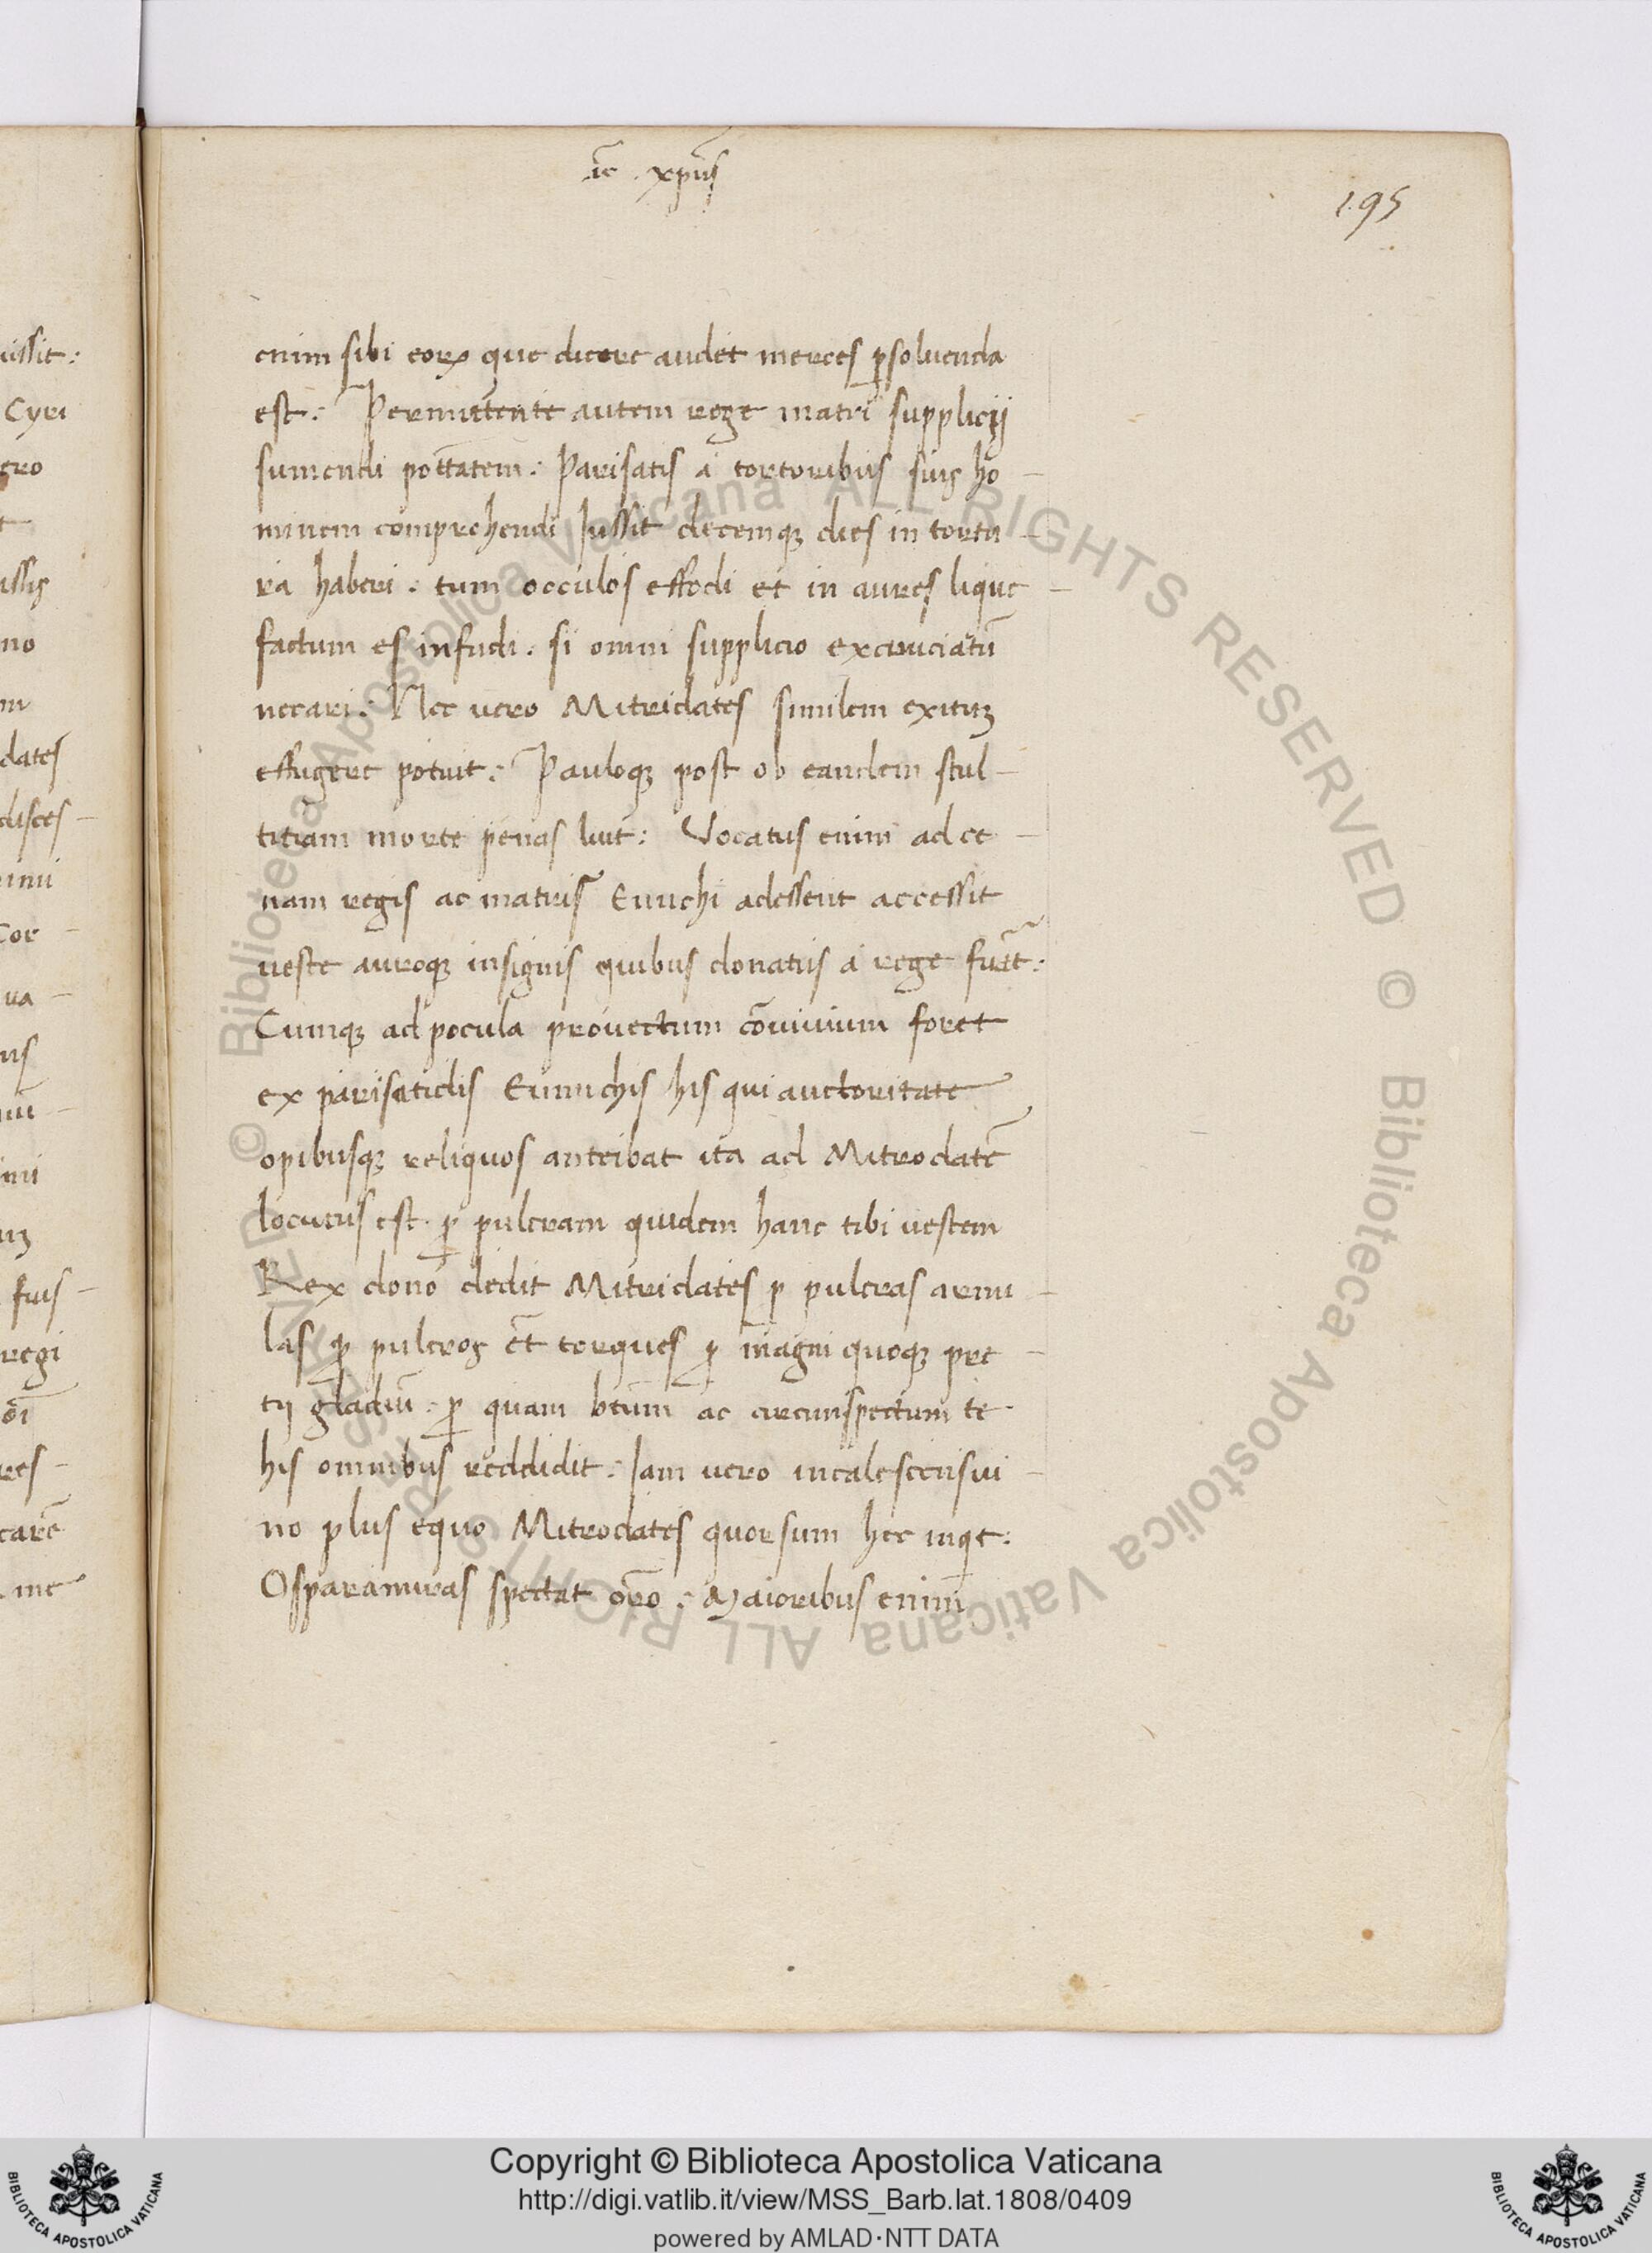 ic . xp̄us
195
enim sibi eoꝝ que dicere audet merces ꝑsoluenda
est : Permittente autem rege matri supplicij
sumendi pott̄atem : Parisatis a tortoribus suis ho -
minem comprehendi Iussit decemqꝫ dies in tortu -
ra haberi . tum occulos effodi et in aures lique -
factum es infudi . si omni supplicio excruciatū
necari : Nec uero Mitridates similem exituꝫ
effugere potuit : Pauloqꝫ post ob eandem stul -
titiam morte penas luit : Vocatus enim ad ce -
nam regis ac matris Eunuchi adessent accessit
ueste auroqꝫ insignis quibus donatus a rege fuer̄t :
Cumqꝫ ad pocula prouectum cōuiuium foret
ex parisatidis Eunuchis his qui auctoritate
opibusqꝫ reliquos anteibat ita ad Mitrodatē
locutus est . ꝑ pulcram quidem hanc tibi uestem
Rex dono dedit Mitridates ꝑ pulcras armi -
las ꝑ pulcros et̄ torques ꝑ magni quoqꝫ pre -
tij gladiū . ꝑ quam btūm ac circunspectum te
his omnibus reddidit : Iam uero incalescens ui -
no plus equo Mitrodates quorsum hec inqt :
Osparamiras spectat or̄o : Maioribus enim
uissit :
Cyri
ero
t
assis
no
m
dates
disces -
imii
Cor -
ua -
us
inii
uꝫ
fuis -
regi
oī
res -
carē
me
© Biblioteca Apostolica Vaticana ALL RIGHTS RESERVED
© Biblioteca Apostolica Vaticana ALL RIGHTS RESERVED
Copyright © Biblioteca Apostolica Vaticana
http://digi.vatlib.it/view/MSS_Barb.lat.1808/0409
powered by AMLAD·NTT DATA
BIBLIOTECA APOSTOLICA VATICANA
BIBLIOTECA APOSTOLICA VATICANA